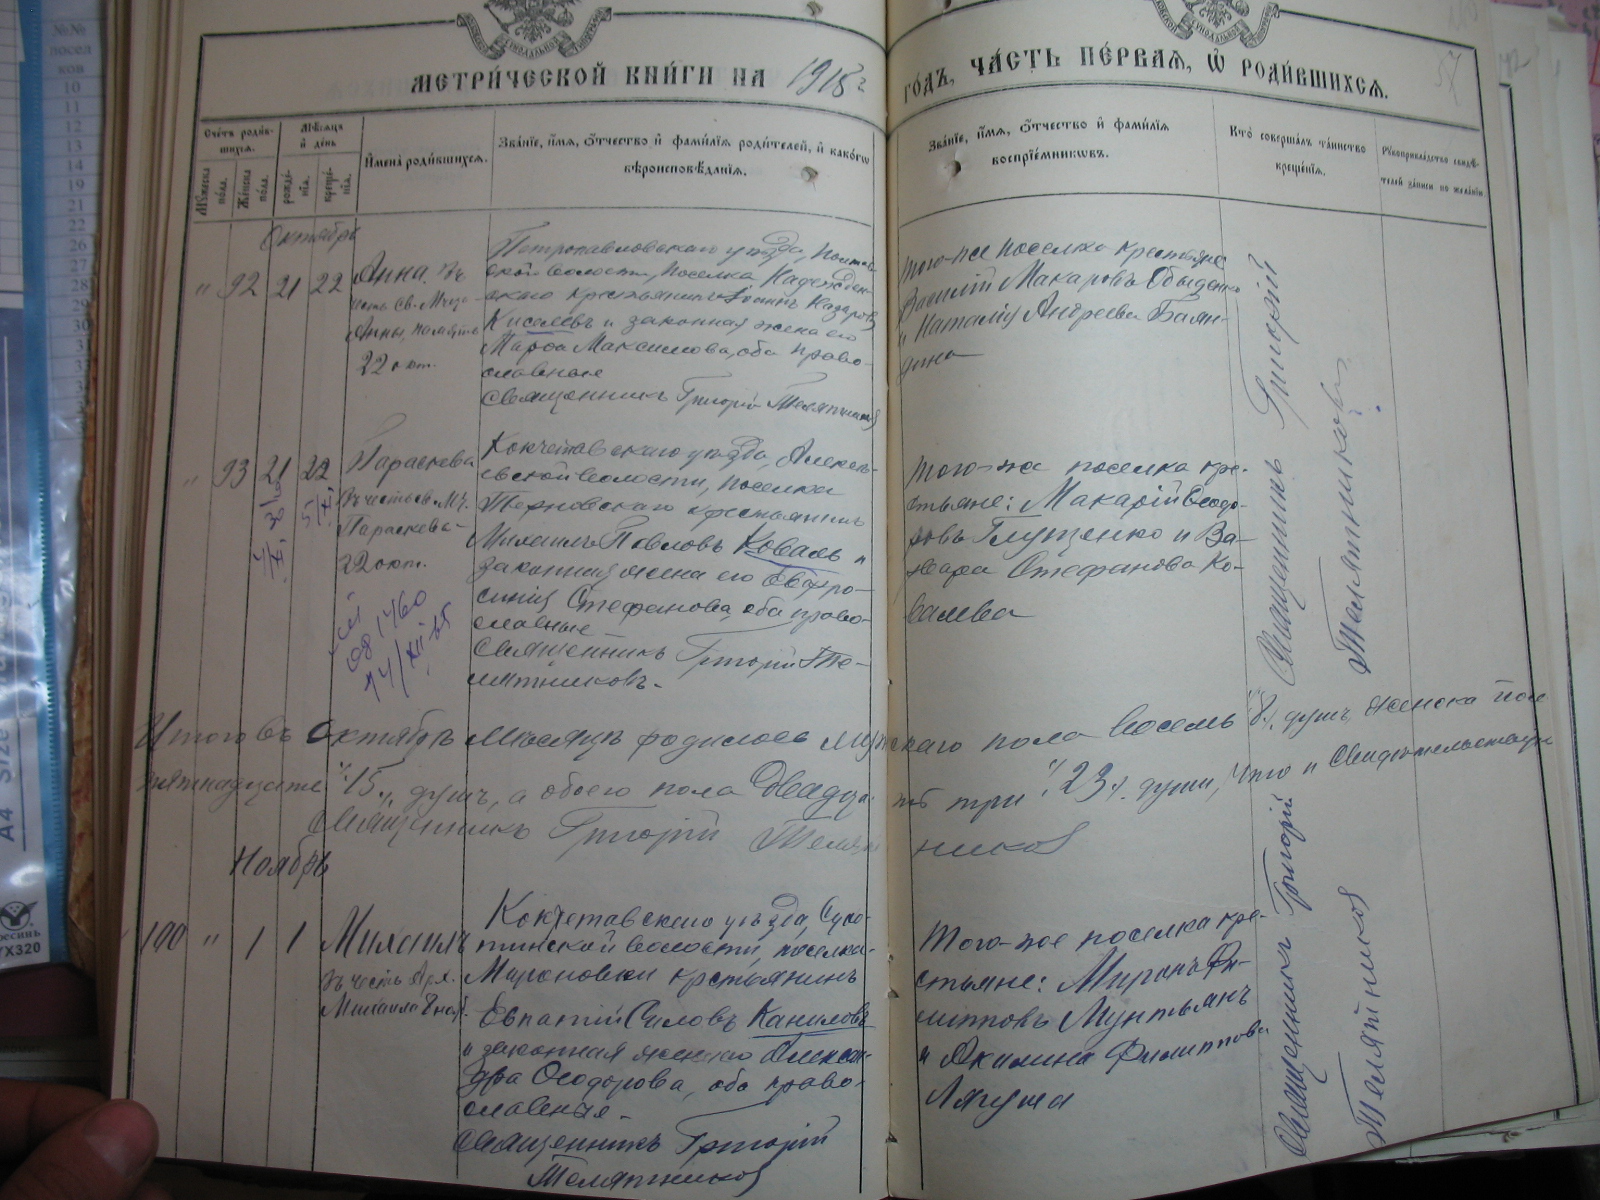 МЕТРИ́ЧЕСКОЙ КНИ́ГИ НА 1915 г.
ГО́ДЪ, ЧА́СТЬ ПЕ́РВАЯ, Ѡ РОДИ́ВШИХСЯ.
Сче́тъ роди́в-
шихся.
Мѣ́сяцъ
и де́нь
Мужеска
по́ла.
Же́нска
по́ла.
рожде́-
нїя.
креще́-
нїя.
Имена̀ роди́вшихся.
Зва́нїе, и́мя, о́тчество и фами́лїя роди́телей, и како́гѡ
вѣроисповѣ́данїя.
Зва́нїе, и́мя, о́тчество и фами́лїя
воспрїе́мникѡвъ.
Кто̀ соверша́лъ та́инство
креще́нїя.
Рꙋкоприкла́дство свидѣ́-
телей за́писи по жела́нїю.
Октябрь
" 92 21 22
Анна. Въ
честь Св. Мчца
Анны, память
22 окт.
Петропавловскаго уѣзда, Полтав-
ской волости, поселка Надежден-
скаго крестьянинъ Іоаннъ Назаровъ
Киселевъ и законная жена его
Марѳа Максимова, оба право-
славные
Священникъ Григорій Телятниковъ
Того-же поселка крестьяне
Василій Макаровъ Обыденко
и Наталія Андреева Баян-
дина
" 93 21 22
Параскева
Въ честь св. Мч.
Параскева
22 окт.
Кокчетавскаго уѣзда, Алексѣ-
евской волости, поселка
Терновскаго крестьянинъ
Михаилъ Павловъ Коваль и
законная жена его Евфро-
синія Стефанова, оба право-
славные
Священникъ Григорій Те-
лятниковъ.
14/XII 65
Того-же поселка кре-
стьяне: Макарій Ѳеодо-
ровъ Глущенко и Ва-
рвара Стефанова Ко-
валева
Священникъ Григорій
Телятниковъ
Итого въ Октябрѣ мѣсяцѣ родилось мужскаго пола восемь "8" душъ, женска пола
пятнадцать "15" душъ, а обоего пола двадцать три "23" души, что и свидѣтельствуемъ
Священникъ Григорій Телятниковъ
Ноябрь
100 " 1 1
Михаилъ
Въ честь Арх.
Михаила 8 нояб.
Кокчетавскаго уѣзда, Суко-
тинской волости, поселка
Мироновки крестьянинъ
Евпатій Силовъ Каниловъ
и законная жена его Алексан-
дра Ѳеодорова, оба право-
славные.
Священникъ Григорій
Телятниковъ
Того-же поселка кре-
стьяне: Миронъ Фи-
липповъ Мунтьянъ
и Акилина Филиппова
Лягуша
Священникъ Григорій
Телятниковъ
№№
посел
ков
10
11
12
13
14
19
21
22
26
27
28
29
30
A4 Size
TX320